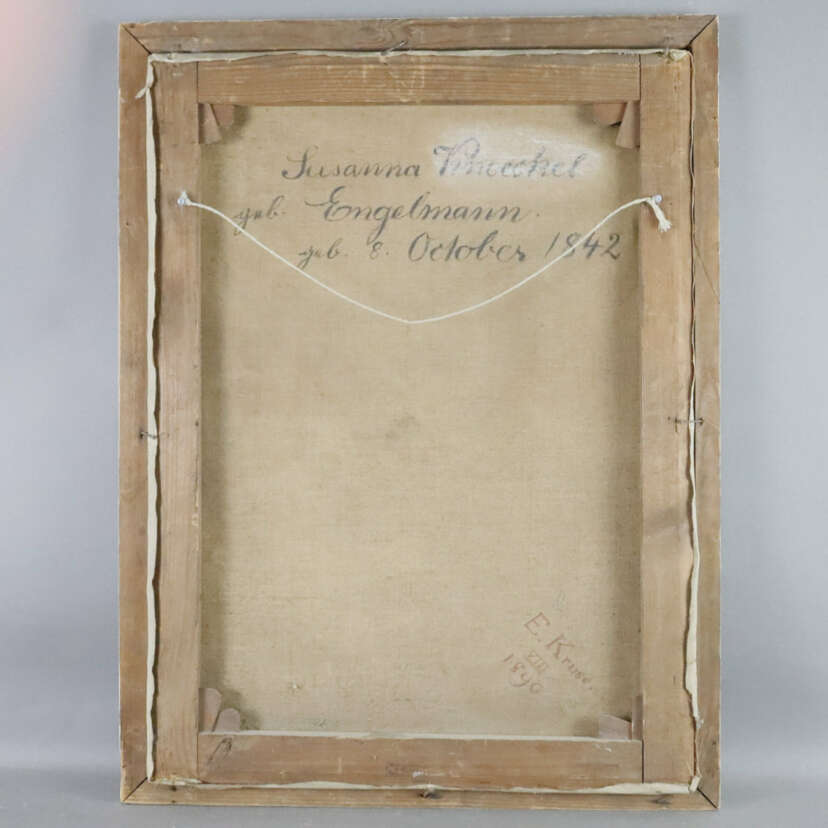 Susanna
geb. Engelmann.
geb. 8. October 1842
E. Kruse.
VIII
1890